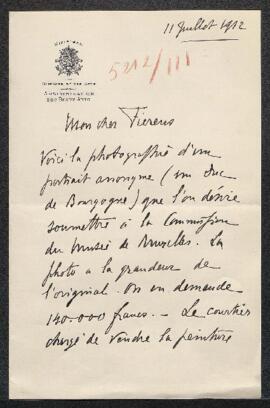 11 Juillet 1912
5212/111
ADMINISTRATION
DES BEAUX-ARTS
Mon cher Fierens
Voici la photographie d'un
portrait anonyme (un Duc
de Bourgogne) que l'on désire
soumettre à la Commission
du Musée de Bruxelles. La
photo a la grandeur de
l'original. On en demande
140.000 francs. — Le courtier
chargé de vendre la peinture